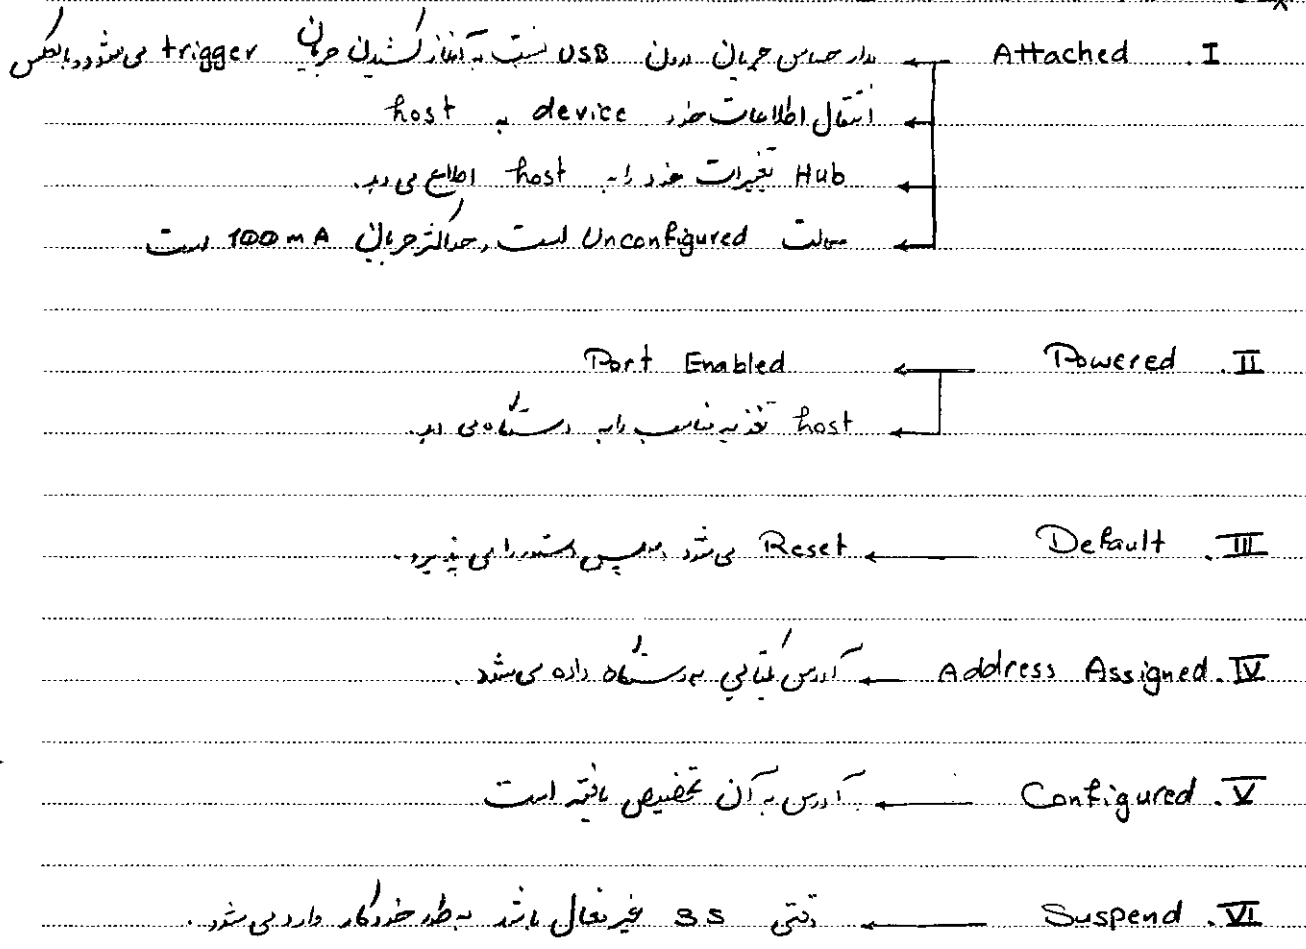 I. Attached ← مدار حساس جریان درون USB نسبت به آغاز کشیدن جریان trigger می‌شود و بالعکس
← انتقال اطلاعات خود device به host
← Hub تغییرات خود را به host اطلاع می‌دهد.
← حالت Unconfigured است و حداکثر جریان 100mA است
II. Powered ← Port Enabled
← host تغذیه مناسب را به دستگاه می‌دهد.
III. Default ← Reset می‌شود و سپس دستور را می‌پذیرد.
IV. Address Assigned ← آدرس یکتایی به دستگاه داده می‌شود.
V. Configured ← آدرس به آن تخصیص یافته است
VI. Suspend ← وقتی 3s غیر فعال باشد به طور خودکار وارد می‌شود.